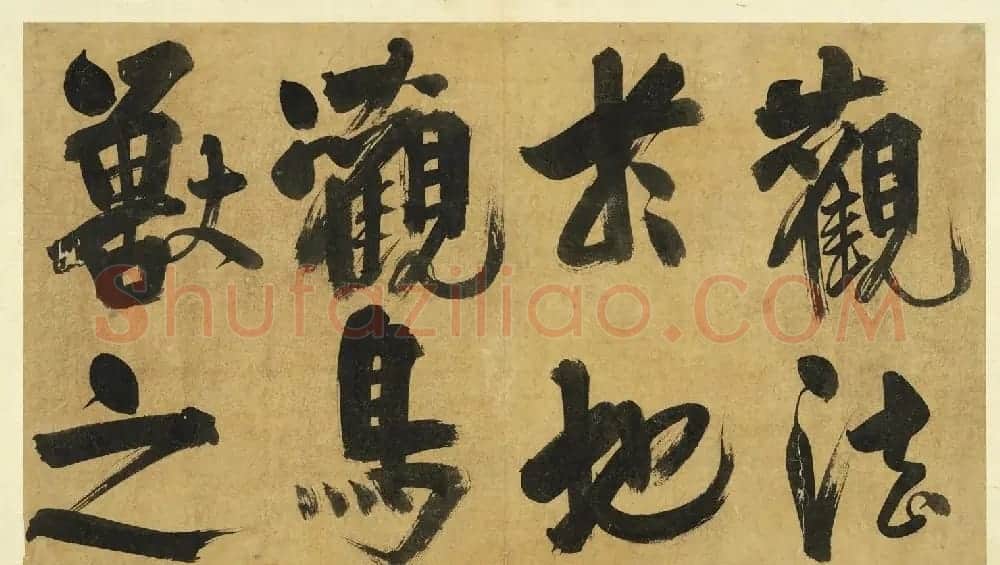 觀法
於地
觀鳥
獸之
Shufaziliao.COM